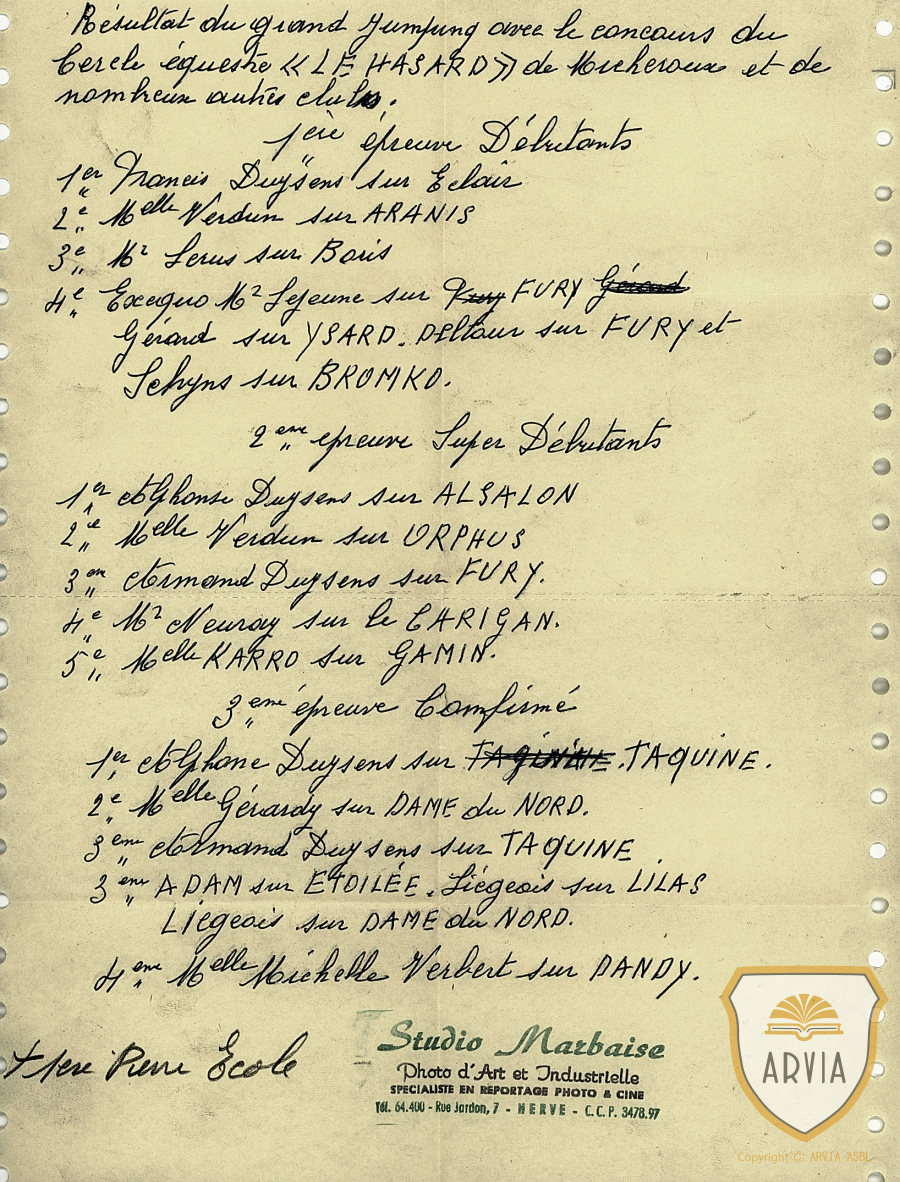 Résultat du grand Jumping avec le concours du
Cercle équestre «LE HASARD» de Micheroux et de
nombreux autres clubs.
1ère épreuve Débutants
1er Francis Duysens sur Eclair
2e Melle Verdun sur ARANIS
3e Mr Lerus sur Boris
4e Exequo Mr Lejeune sur Fury FURY Gérard
Gérard sur YSARD. Deltour sur FURY et
Schyns sur BROMKO.
2eme épreuve Super Débutants
1er Alphonse Duysens sur ALSALON
2e Melle Verdun sur ORPHUS
3em Armand Duysens sur FURY.
4e Mr Neuray sur le CARIGAN.
5e Melle KARRO sur GAMIN.
3eme épreuve Comfirmé
1er Alphone Duysens sur TAQUINE.
2e Melle Gérardy sur DAME du NORD.
3eme Armand Duysens sur TAQUINE
3eme ADAM sur ETOILÉE. Liégeois sur LILAS
Liégeois sur DAME du NORD.
4eme Melle Michelle Verbert sur DANDY.
+ 1ere Pierre Ecole
Studio Marbaise
Photo d'Art et Industrielle
SPECIALISTE EN REPORTAGE PHOTO & CINE
Tél. 64.400 - Rue Jardon, 7 - HERVE - C.C.P. 3478.97
ARVIA
Copyright © ARVIA ASBL